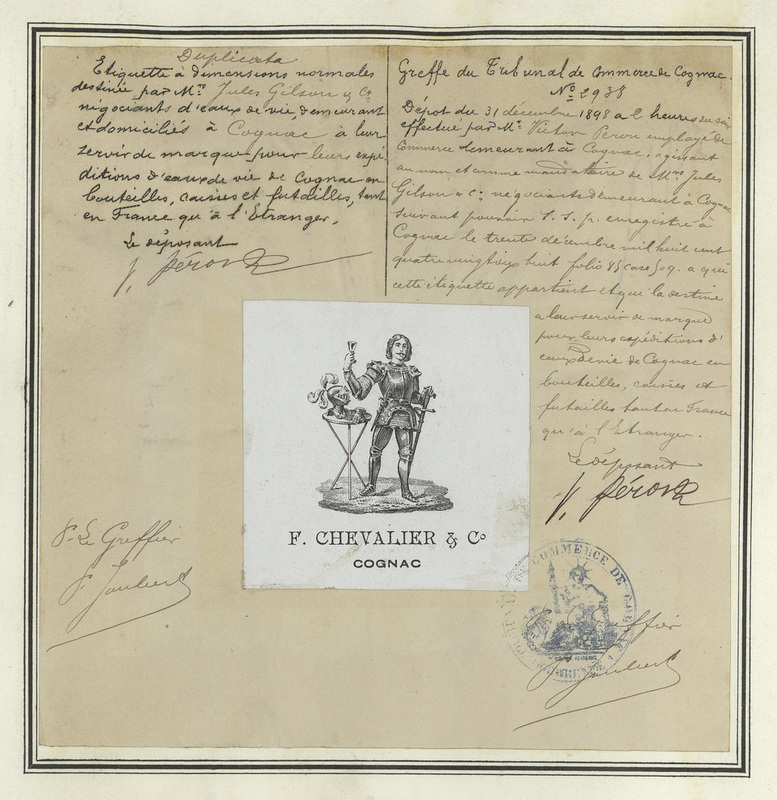 Duplicata
Etiquette à dimensions normales
destinée par Mrs Jules Gilson & Co
négociants d'eaux de vie, demeurant
et domiciliés à Cognac à leur
servir de marque pour leurs expé
ditions d'eaux de vie de Cognac en
bouteilles, caisses et futailles, tant
en France qu'à l'Etranger.
Le déposant
V. Péron
Greffe du Tribunal de Commerce de Cognac.
No 2938
Dépôt du 31 décembre 1898 à 2 heures du soir
effectué par Mr Victor Peron employé de
Commerce demeurant à Cognac, agissant
au nom et comme mandataire de Mrs Jules
Gilson & Co négociants demeurant à Cognac
suivant pouvoir S. S. p. enregistré à
Cognac le trente décembre mil huit cent
quatre vingt dix huit folio 85 case a qui
cette étiquette appartient et qui la destine
a leur servir de marque
pour leurs expéditions d'
eaux de vie de Cognac en
bouteilles, caisses et
futailles tant en France
qu'à l'Etranger.
Le déposant
V. Péron
F. CHEVALIER & Co
COGNAC
P. Le Greffier
P. Joubert
COMMERCE DE COGNAC
Greffier
P. Joubert